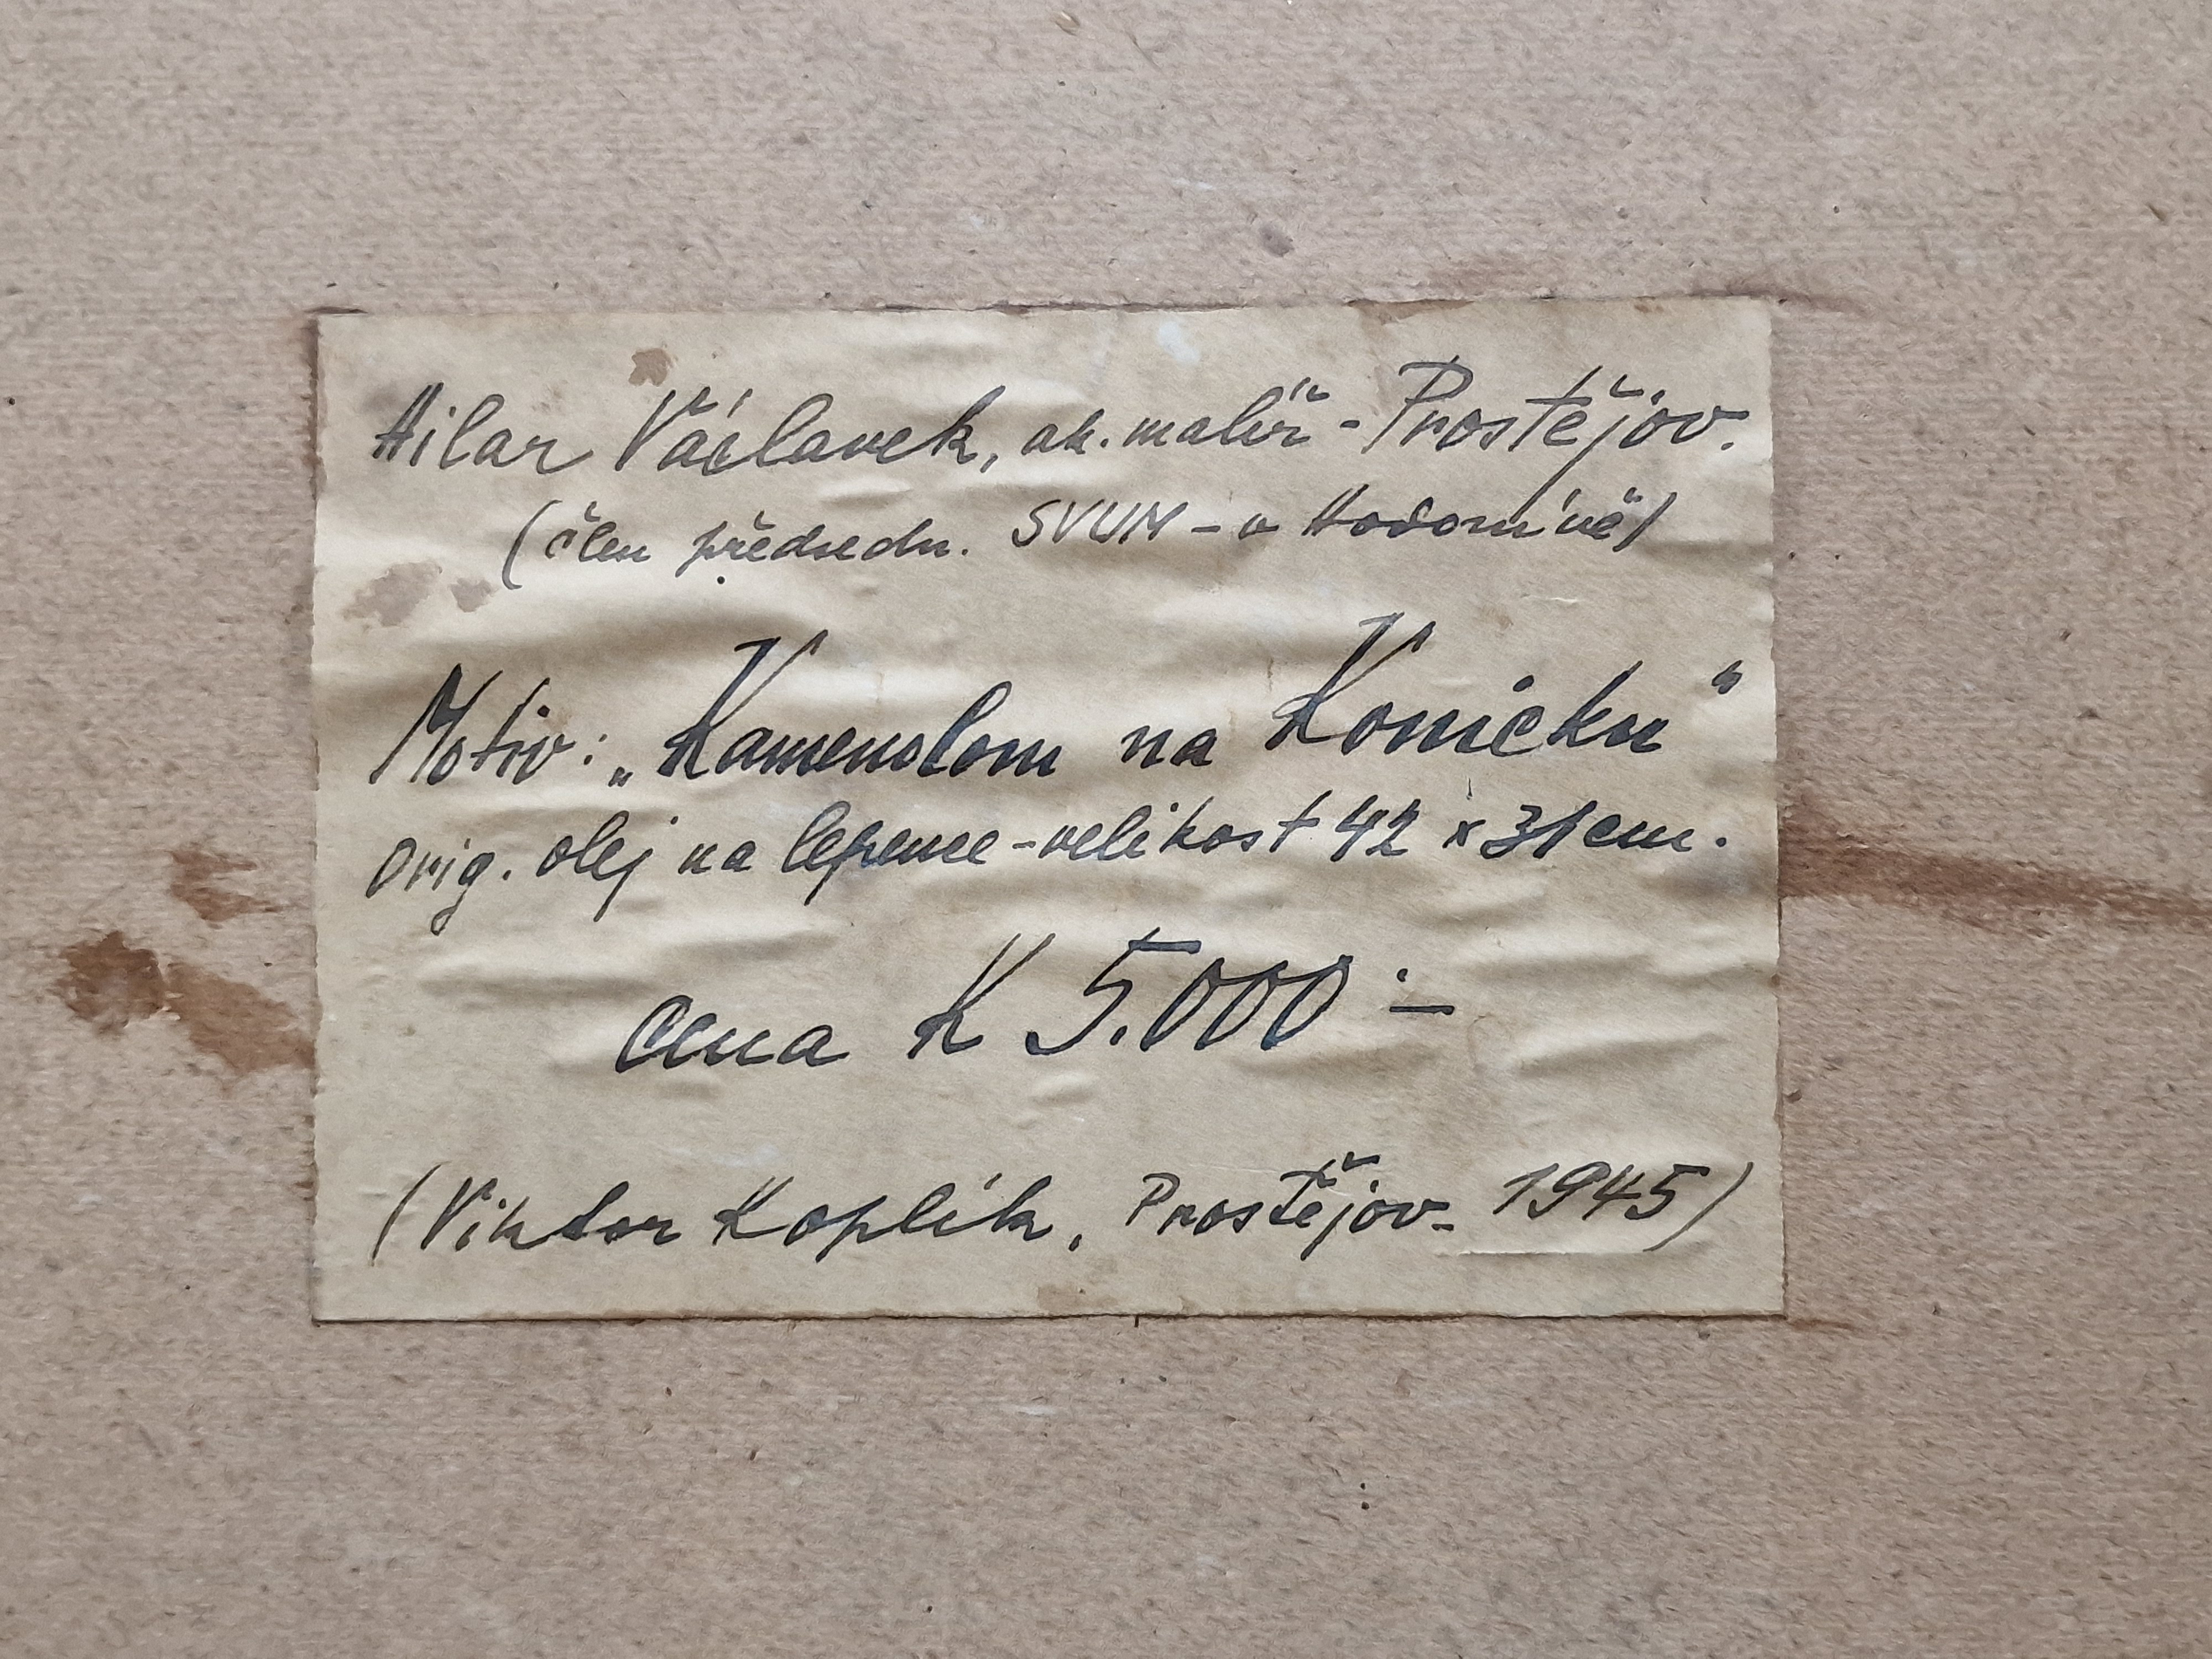 Hilar Václavek, ak. malíř - Prostějov.
(člen předsedn. SVUM - v Hodoníně)
Motiv: „Kamenolom na Konicku“
Orig. olej na lepence - velikost 42 x 31 cm.
cena K 5.000·-
(Viktor Koplík, Prostějov - 1945)